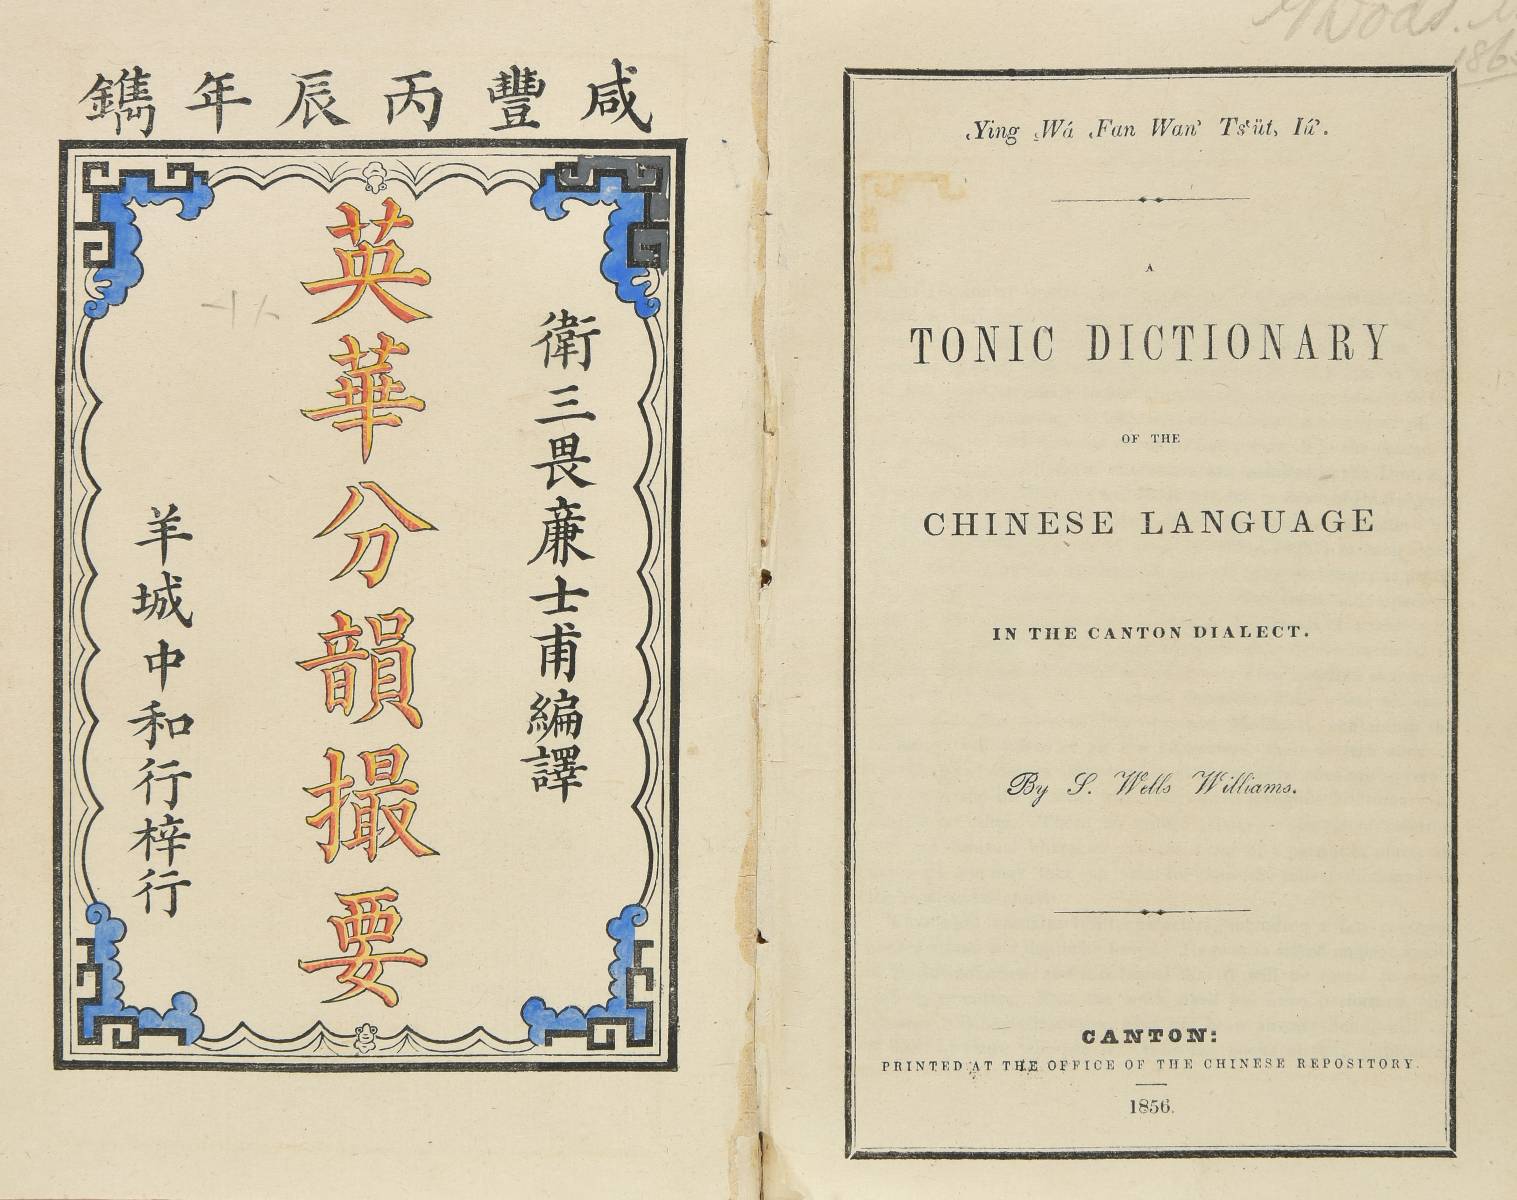 咸豐丙辰年鐫
衛三畏廉士甫編譯
英華分韻撮要
羊城中和行梓行
˛Ying ˛Wá ˛Fan Wan’ Ts‘üt, Iú’.
A
TONIC DICTIONARY
OF THE
CHINESE LANGUAGE
IN THE CANTON DIALECT.
By S. Wells Williams.
CANTON:
PRINTED AT THE OFFICE OF THE CHINESE REPOSITORY.
1856.